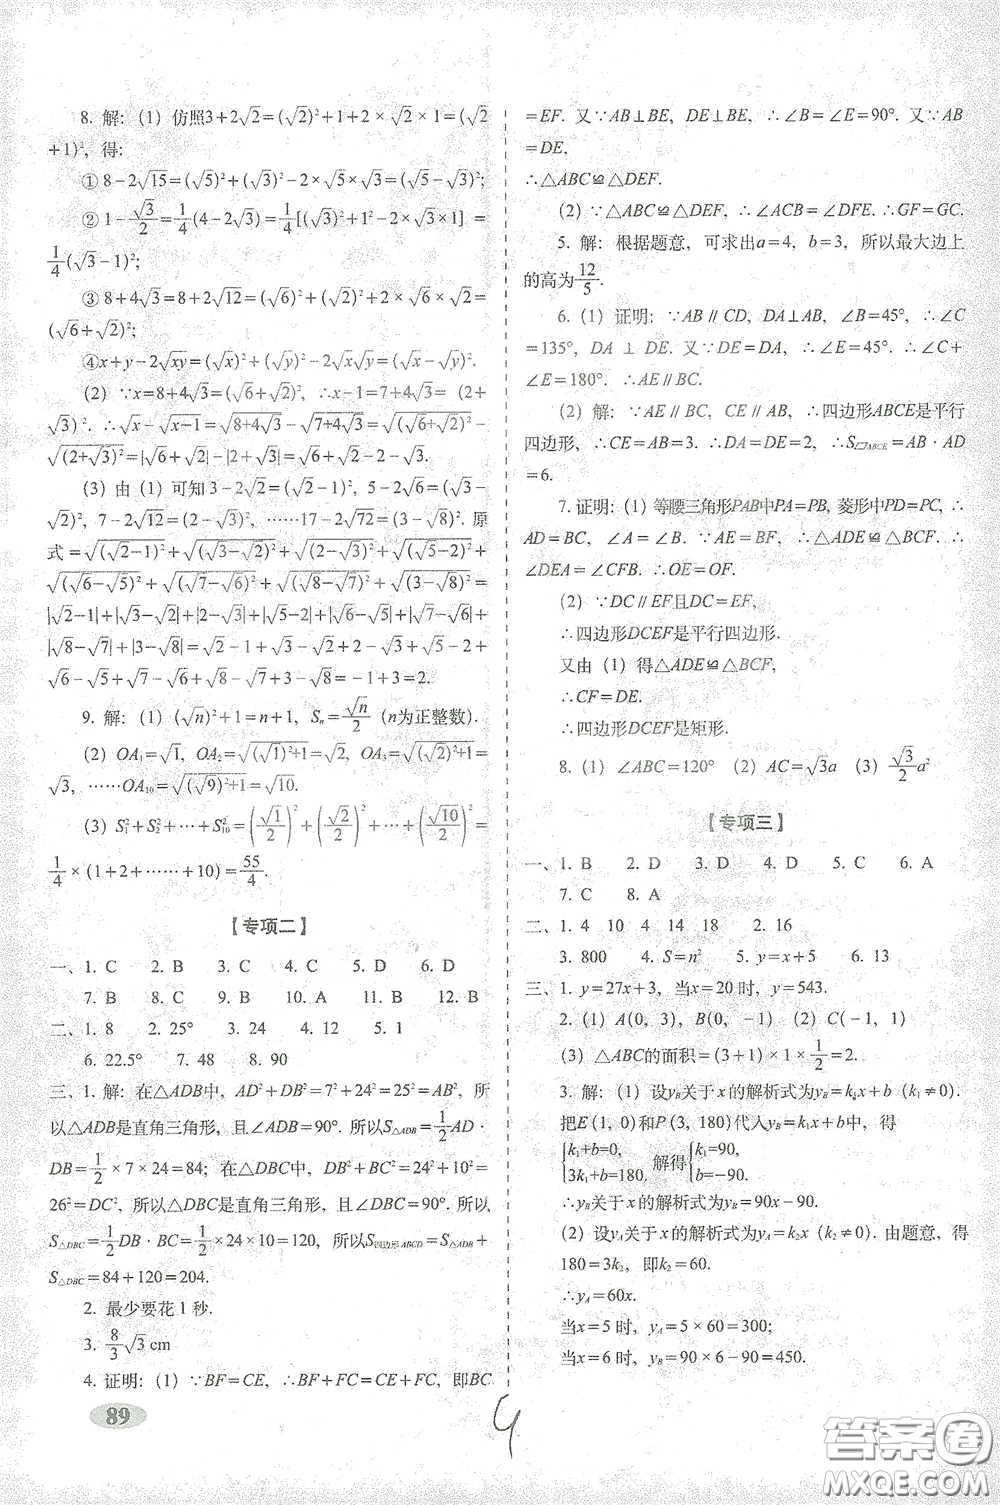 8. 解：(1) 仿照3+2√2=(√2)²+1+2×√2×1=(√2
+1)²，得：
①8-2√15=(√5)²+(√3)²-2×√5×√3=(√5-√3)²;
②1-√3/2=1/4(4-2√3)=1/4[(√3)²+1²-2×√3×1]=
1/4(√3-1)²;
③8+4√3=8+2√12=(√6)²+(√2)²+2×√6×√2=
(√6+√2)²;
④x+y-2√xy=(√x)²+(√y)²-2√x√y=(√x-√y)².
(2) ∵x=8+4√3=(√6+√2)²，∴x-1=7+4√3=(2+
√3)². ∴√x-√x-1=√8+4√3-√7+4√3=√(√6+√2)²-
√(2+√3)²=|√6+√2|-|2+√3|=√6+√2-2-√3.
(3) 由（1）可知3-2√2=(√2-1)²，5-2√6=(√3-
√2)²，7-2√12=(2-√3)²，……17-2√72=(3-√8)². 原
式=√(√2-1)²+√(√3-√2)²+√(2-√3)²+√(√5-2)²+
√(√6-√5)²+√(√7-√6)²+√(√8-√7)²+√(3-√8)²=
|√2-1|+|√3-√2|+|2-√3|+|√5-2|+|√6-√5|+|√7-√6|+
|√8-√7|+|3-√8|=√2-1+√3-√2+2-√3+√5-2+
√6-√5+√7-√6+√8-√7+3-√8=-1+3=2.
9. 解：(1) (√n)²+1=n+1，Sₙ=√n/2（n为正整数）.
(2) OA₁=√1，OA₂=√(√1)²+1=√2，OA₃=√(√2)²+1=
√3，……OA₁₀=√(√9)²+1=√10.
(3) S₁²+S₂²+…+S₁₀²=(√1/2)²+(√2/2)²+…+(√10/2)²=
1/4×(1+2+……+10)=55/4.
【专项二】
一、1. C 2. B 3. C 4. C 5. D 6. D
7. B 8. C 9. B 10. A 11. B 12. B
二、1. 8 2. 25° 3. 24 4. 12 5. 1
6. 22.5° 7. 48 8. 90
三、1. 解：在△ADB中，AD²+DB²=7²+24²=25²=AB²，所
以△ADB是直角三角形，且∠ADB=90°. 所以S△ADB=1/2AD·
DB=1/2×7×24=84；在△DBC中，DB²+BC²=24²+10²=
26²=DC²，所以△DBC是直角三角形，且∠DBC=90°. 所以
S△DBC=1/2DB·BC=1/2×24×10=120，所以S四边形ABCD=S△ADB+
S△DBC=84+120=204.
2. 最少要花1秒.
3. 8/3√3 cm
4. 证明：(1) ∵BF=CE，∴BF+FC=CE+FC，即BC
89
=EF. 又∵AB⊥BE，DE⊥BE，∴∠B=∠E=90°. 又∵AB
=DE，
∴△ABC≌△DEF.
(2) ∵△ABC≌△DEF，∴∠ACB=∠DFE. ∴GF=GC.
5. 解：根据题意，可求出a=4，b=3，所以最大边上
的高为12/5.
6. (1) 证明：∵AB∥CD，DA⊥AB，∠B=45°，∴∠C
=135°，DA⊥DE. 又∵DE=DA，∴∠E=45°. ∴∠C+
∠E=180°. ∴AE∥BC.
(2) 解：∵AE∥BC，CE∥AB，∴四边形ABCE是平行
四边形，∴CE=AB=3. ∴DA=DE=2，∴S▱ABCE=AB·AD
=6.
7. 证明：(1) 等腰三角形PAB中PA=PB，菱形中PD=PC，∴
AD=BC，∠A=∠B. 又∵AE=BF，∴△ADE≌△BCF. ∴
∠DEA=∠CFB. ∴OE=OF.
(2) ∵DC∥EF且DC=EF，
∴四边形DCEF是平行四边形.
又由（1）得△ADE≌△BCF，
∴CF=DE.
∴四边形DCEF是矩形.
8. (1) ∠ABC=120° (2) AC=√3a (3) √3/2a²
【专项三】
一、1. B 2. D 3. D 4. D 5. C 6. A
7. C 8. A
二、1. 4 10 4 14 18 2. 16
3. 800 4. S=n² 5. y=x+5 6. 13
三、1. y=27x+3，当x=20时，y=543.
2. (1) A(0，3)，B(0，-1) (2) C(-1，1)
(3) △ABC的面积=(3+1)×1×1/2=2.
3. 解：(1) 设yB关于x的解析式为yB=k₁x+b（k₁≠0）.
把E(1，0)和P(3，180)代人yB=k₁x+b中，得
{k₁+b=0, 3k₁+b=180, 解得{k₁=90, b=-90.
∴yB关于x的解析式为yB=90x-90.
(2) 设yA关于x的解析式为yA=k₂x（k₂≠0）. 由题意，得
180=3k₂，即k₂=60.
∴yA=60x.
当x=5时，yA=5×60=300;
当x=6时，yB=90×6-90=450.
答案圈
MXQE.COM